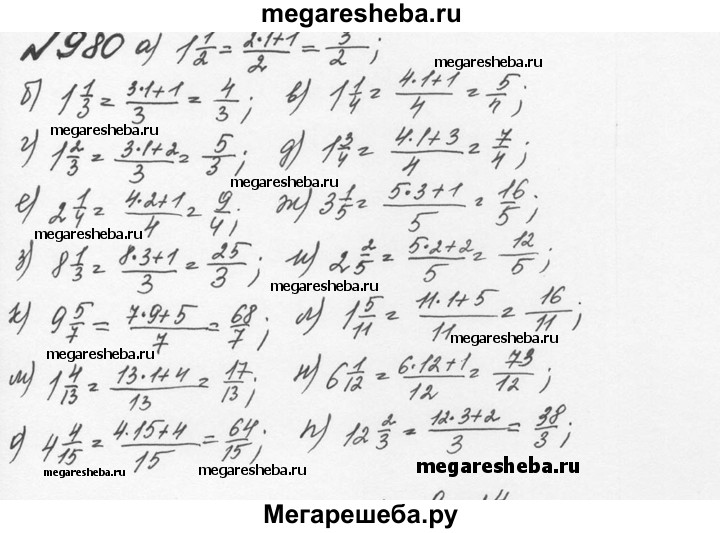 megaresheba.ru
№980 а) 1 1/2 = (2·1+1)/2 = 3/2;
megaresheba.ru
б) 1 1/3 = (3·1+1)/3 = 4/3; в) 1 1/4 = (4·1+1)/4 = 5/4;
megaresheba.ru megaresheba.ru
г) 1 2/3 = (3·1+2)/3 = 5/3; д) 1 3/4 = (4·1+3)/4 = 7/4;
megaresheba.ru
е) 2 1/4 = (4·2+1)/4 = 9/4; ж) 3 1/5 = (5·3+1)/5 = 16/5;
megaresheba.ru megaresheba.ru
з) 8 1/3 = (8·3+1)/3 = 25/3; и) 2 2/5 = (5·2+2)/5 = 12/5;
megaresheba.ru
к) 9 5/7 = (7·9+5)/7 = 68/7; л) 1 5/11 = (11·1+5)/11 = 16/11;
megaresheba.ru megaresheba.ru
м) 1 4/13 = (13·1+4)/13 = 17/13; н) 6 1/12 = (6·12+1)/12 = 73/12;
megaresheba.ru
о) 4 4/15 = (4·15+4)/15 = 64/15; п) 12 2/3 = (12·3+2)/3 = 38/3;
megaresheba.ru megaresheba.ru megaresheba.ru
Мегарешеба.ру